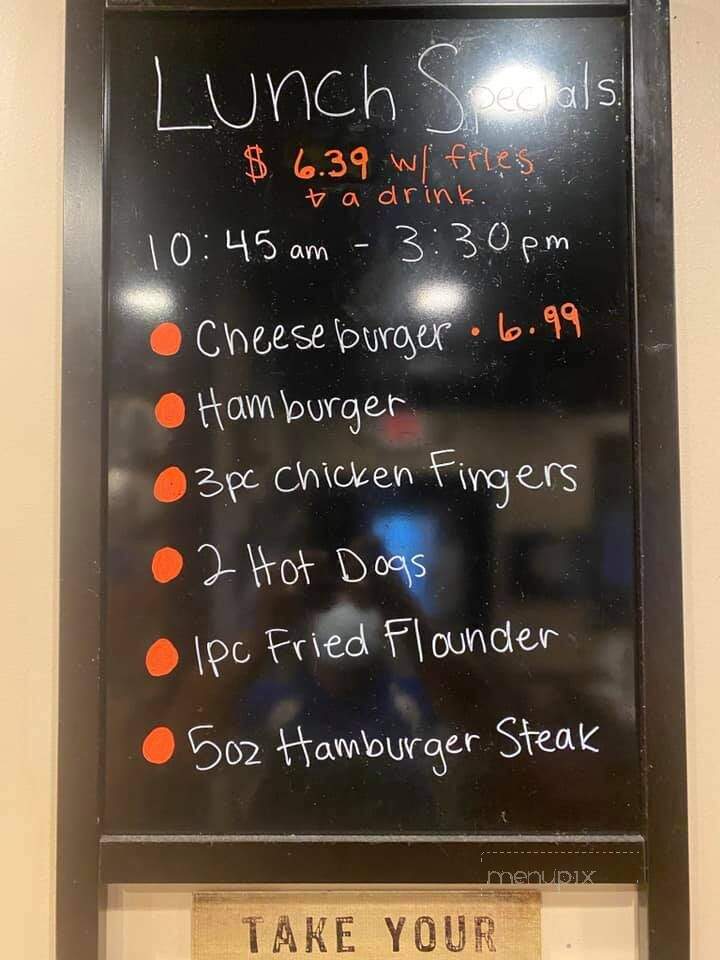 Lunch Specials.
$ 6.39 w/ fries
& a drink.
10:45 am - 3:30pm
Cheeseburger · 6.99
Hamburger
3pc Chicken Fingers
2 Hot Dogs
1pc Fried Flounder
5oz Hamburger Steak
menupix
TAKE YOUR